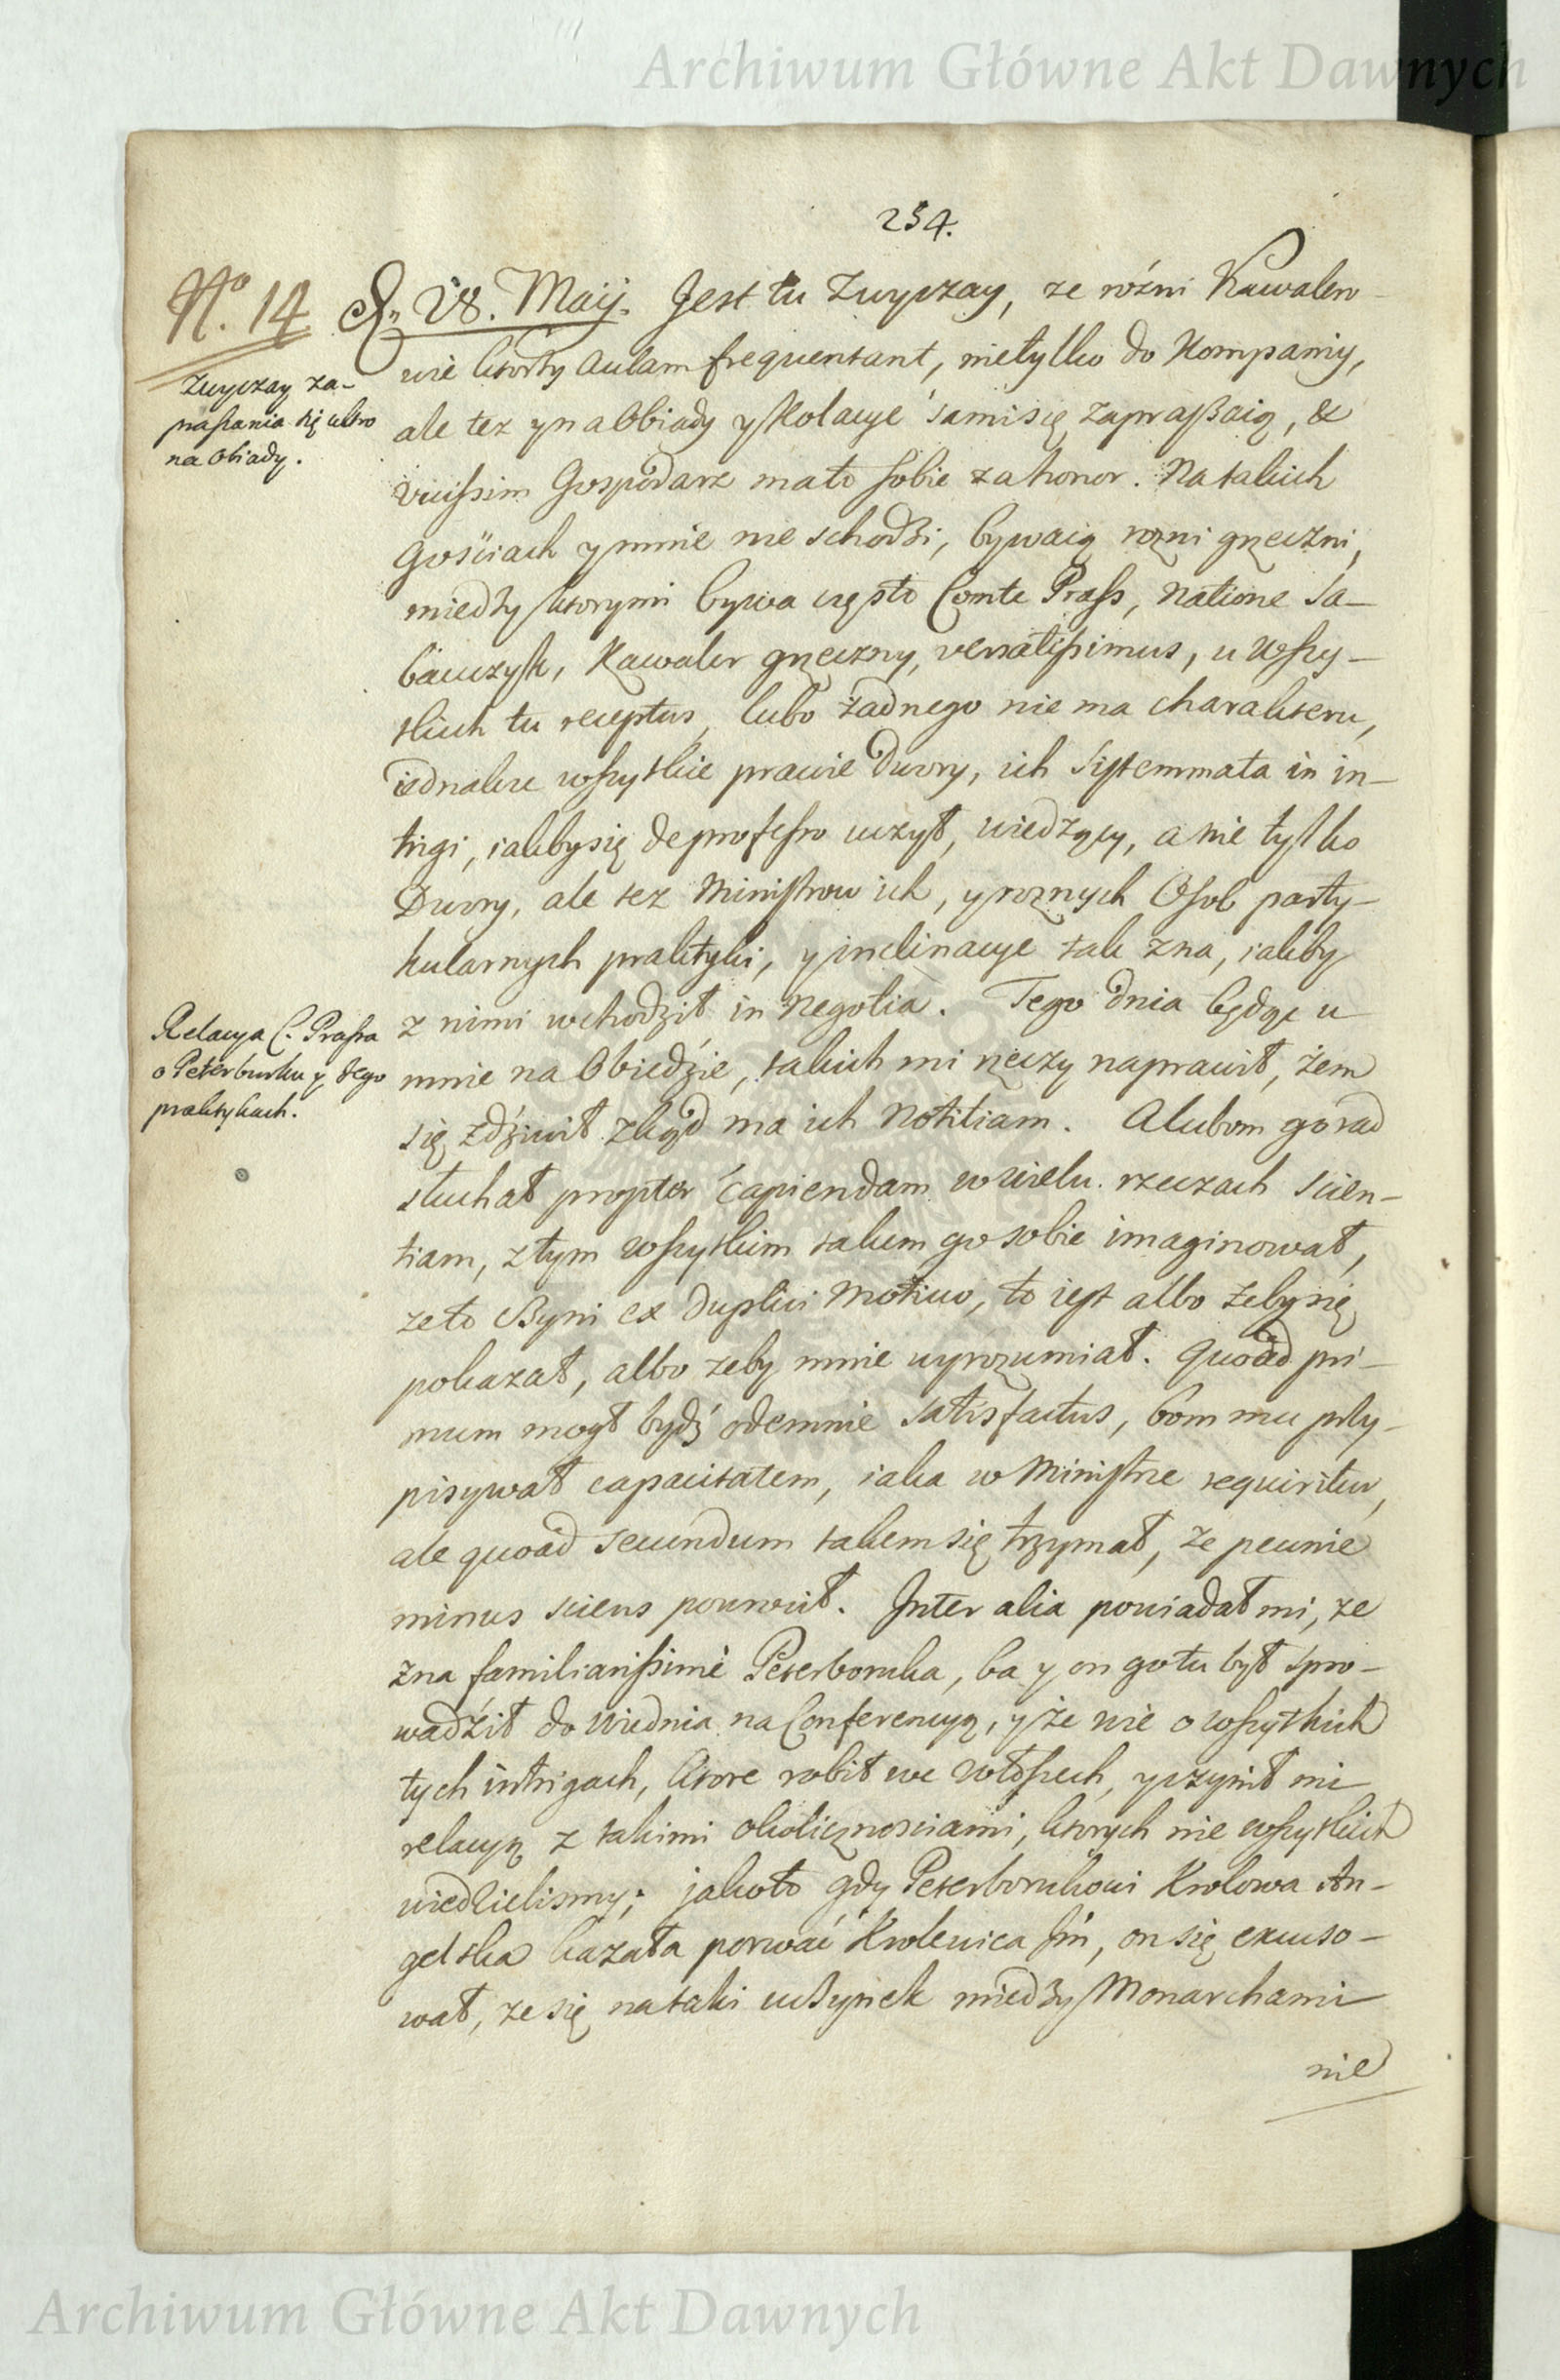 Archiwum Główne Akt Dawnych
234.
No. 14
D. 28. Maij. Jest tu zwyczay, ze różni Kawalero-
wie ktorzy Aulam frequentant, nietylko do Kompaniy,
Zwyczay za-
praszania się ultro
na Obiady.
ale tez y na Obiady y Kolacye samisię zapraszaią, &
vicissim Gospodarz mato sobie za honor. Na takich
Gościach y mnie nie schodzi, bywaią rozni grzeczni,
miedzy ktorymi bywa często Comte Prass, natione Sa-
bauczyk, Kawaler grzeczny, versatissimus, u wszy-
stkich tu receptus, lubo żadnego nie ma charakteru,
iednakze wszystkie prawie Dwory, ich Systemmata in in-
trigi, iakbysię de professo uczył, wiedzący, a nie tylko
Dwory, ale tez Ministrow ich, y roznych Osob party-
kularnych praktyki, y inclinacye tak zna, iakby
z nimi wchodził in negotia. Tego dnia będąc u
Relacya C. Prassa
o Peterburku y tego
praktykach.
mnie na Obiedzie, takich mi rzeczy naprawił, żem
się zdziwił zkąd ma ich notitiam. A lubom go rad
słuchał propter capiendam w wielu rzeczach scien-
tiam, z tym wszystkim takem go sobie imaginował,
ze to czyni ex duplici motivo, to iest albo żeby się
pokazał, albo zeby mnie wyrozumiał. Quoad pri-
mum mogł bydź odemnie satisfactus, bom mu przy-
pisywał capacitatem, iaka w Ministrze requiritur,
ale quoad secundum takem się trzymał, ze pewnie
minus sciens powrocił. Inter alia powiadał mi, ze
zna familiarissimè Peterboruka, ba y on go tu był spro-
wadził do Wiednia na Conferencyą, y że wie o wszystkich
tych intrigach, ktore robił we Włoszech, y czynił mi
relacyą z takimi okolicznosciami, ktorych nie wszystkich
wiedzielismy; jakoto gdy Peterborukowi Krolowa An-
gelska kazała porwać Krolewica Jm, on się excuso-
wał, ze się na taki uczynek miedzy Monarchami
nie
Archiwum Główne Akt Dawnych